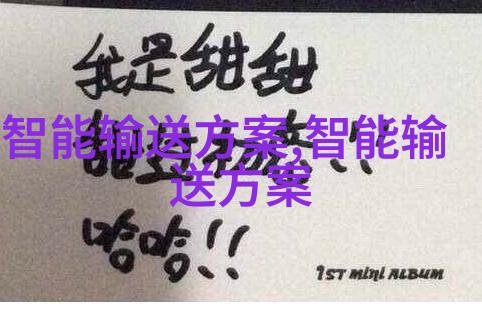 我是甜甜
智能输送方案,智能输
送方案
哈哈!!
1ST mini ALBUM